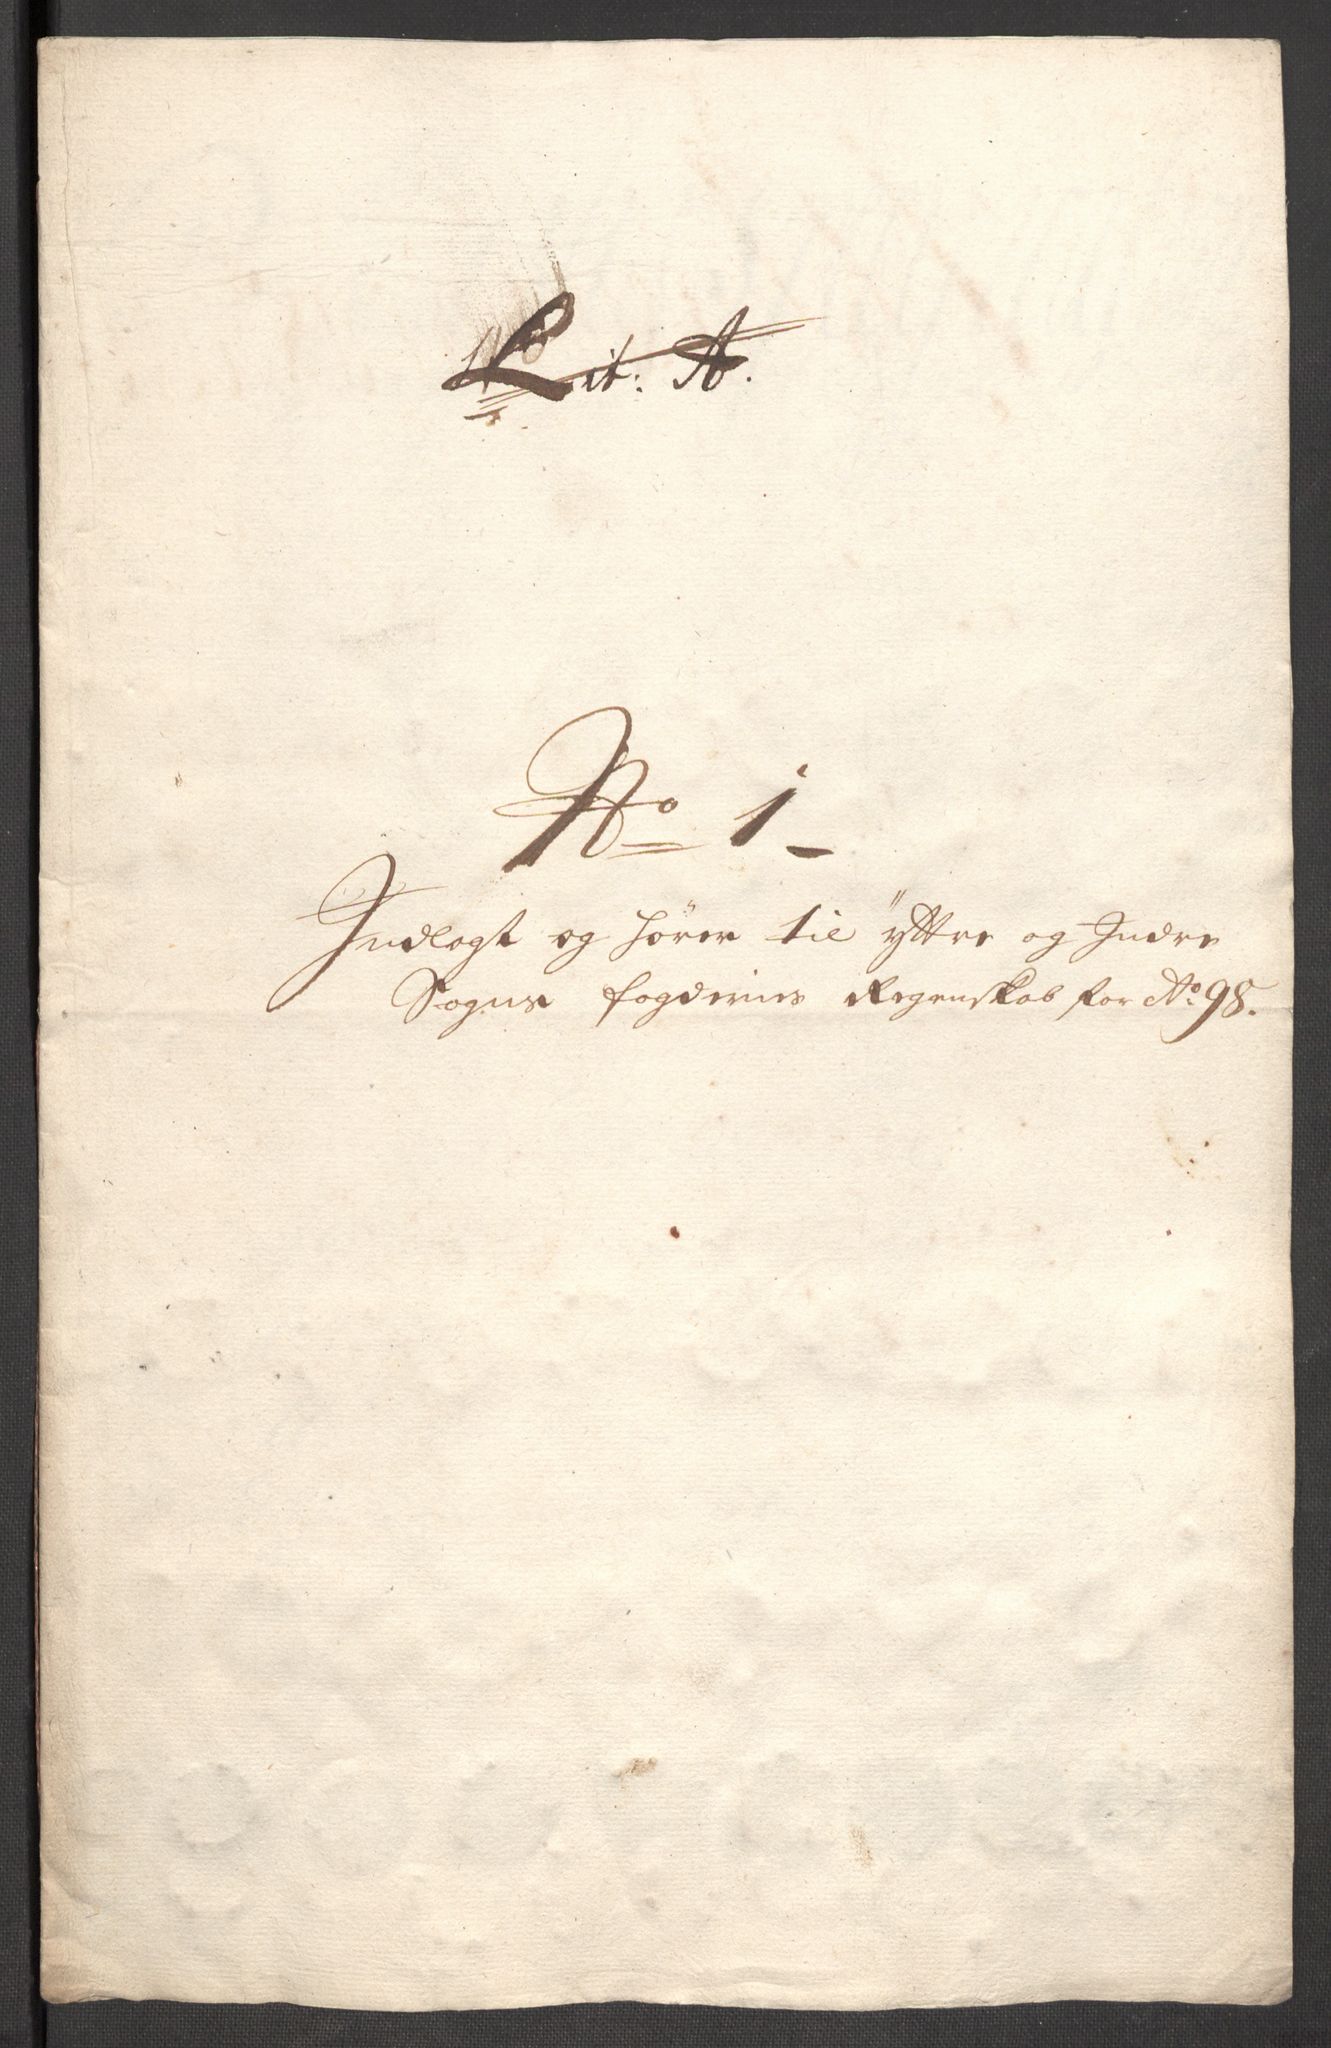 Lit: A.
No 1
Indlagt og hører til ÿttre og Indre
Sogns fogderies Regenskab for Ao 98.